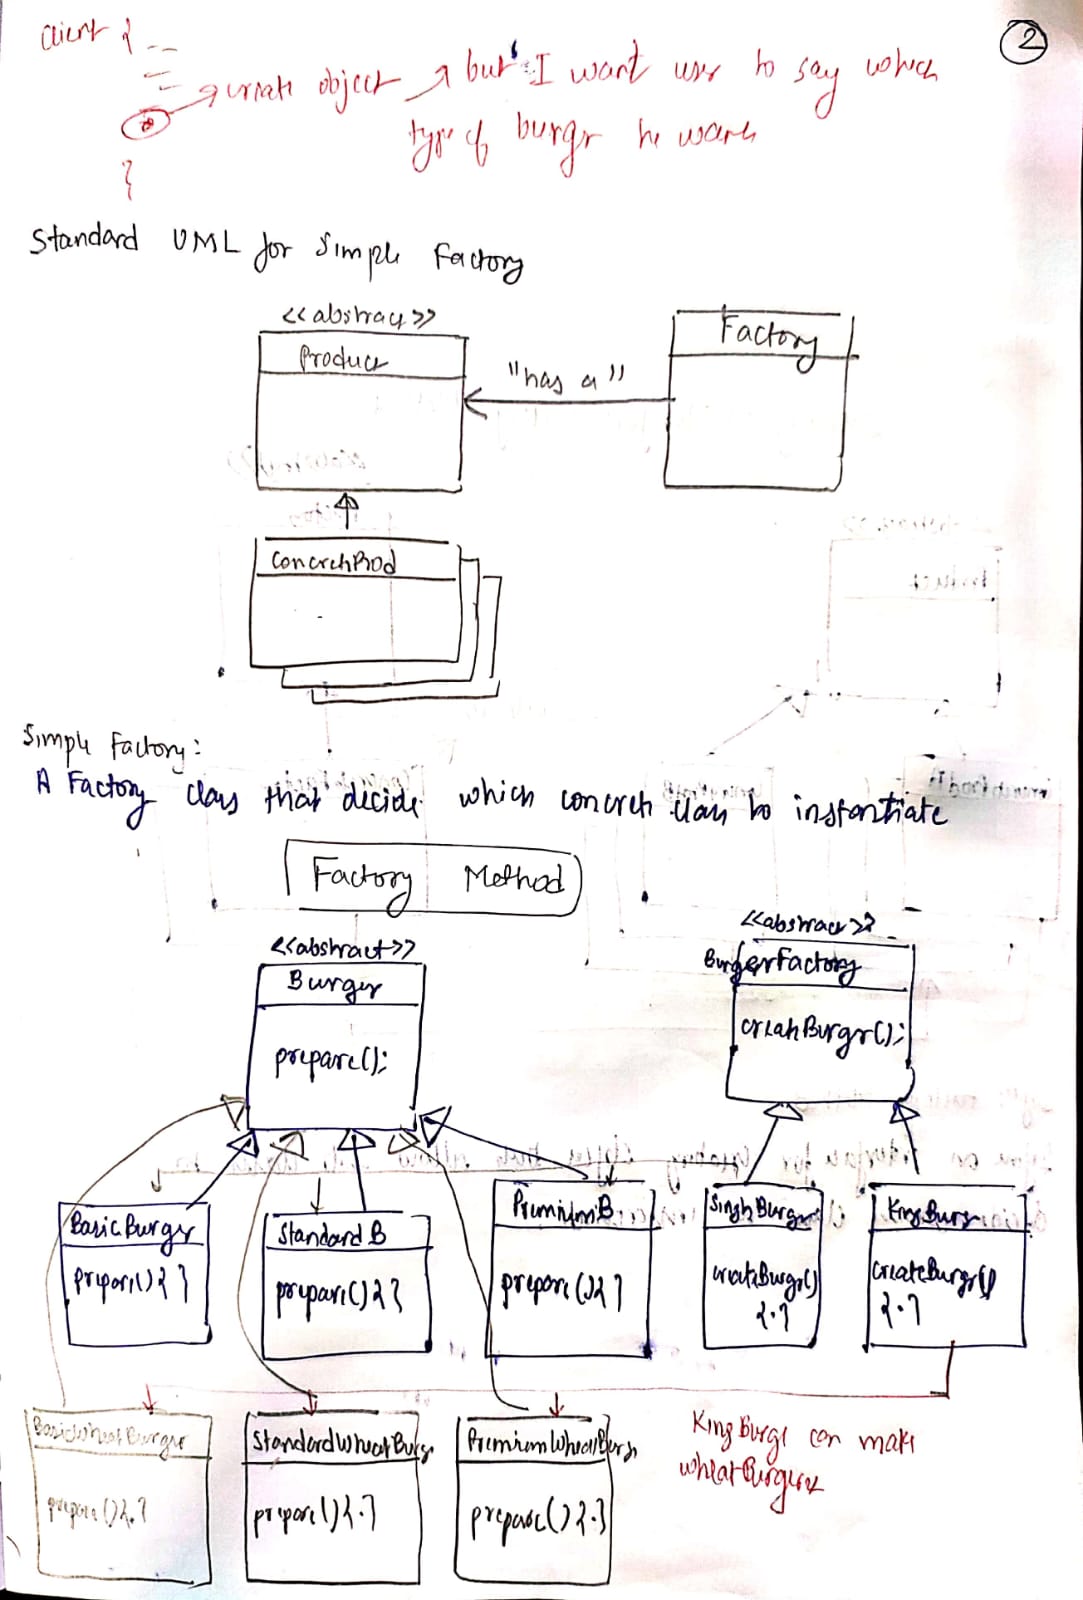 client {
create object → but I want user to say which
type of burger he wants
}
2
Standard UML for Simple Factory
<<abstract>>
Product
"has a"
Factory
ConcreteProd
Simple Factory:
A Factory class that decide which concrete class to instantiate
Factory Method
<<abstract>>
Burger
prepare();
<<abstract>>
BurgerFactory
createBurger();
BasicBurger
prepare() { }
Standard B
prepare() { }
Premium B
prepare() { }
Singh Burger
createBurger()
{ . }
King Burger
createBurger()
{ . }
BasicWheatBurger
prepare() { . }
StandardWheatBurger
prepare() { . }
PremiumWheatBurger
prepare() { . }
King Burger can make
wheatBurgers